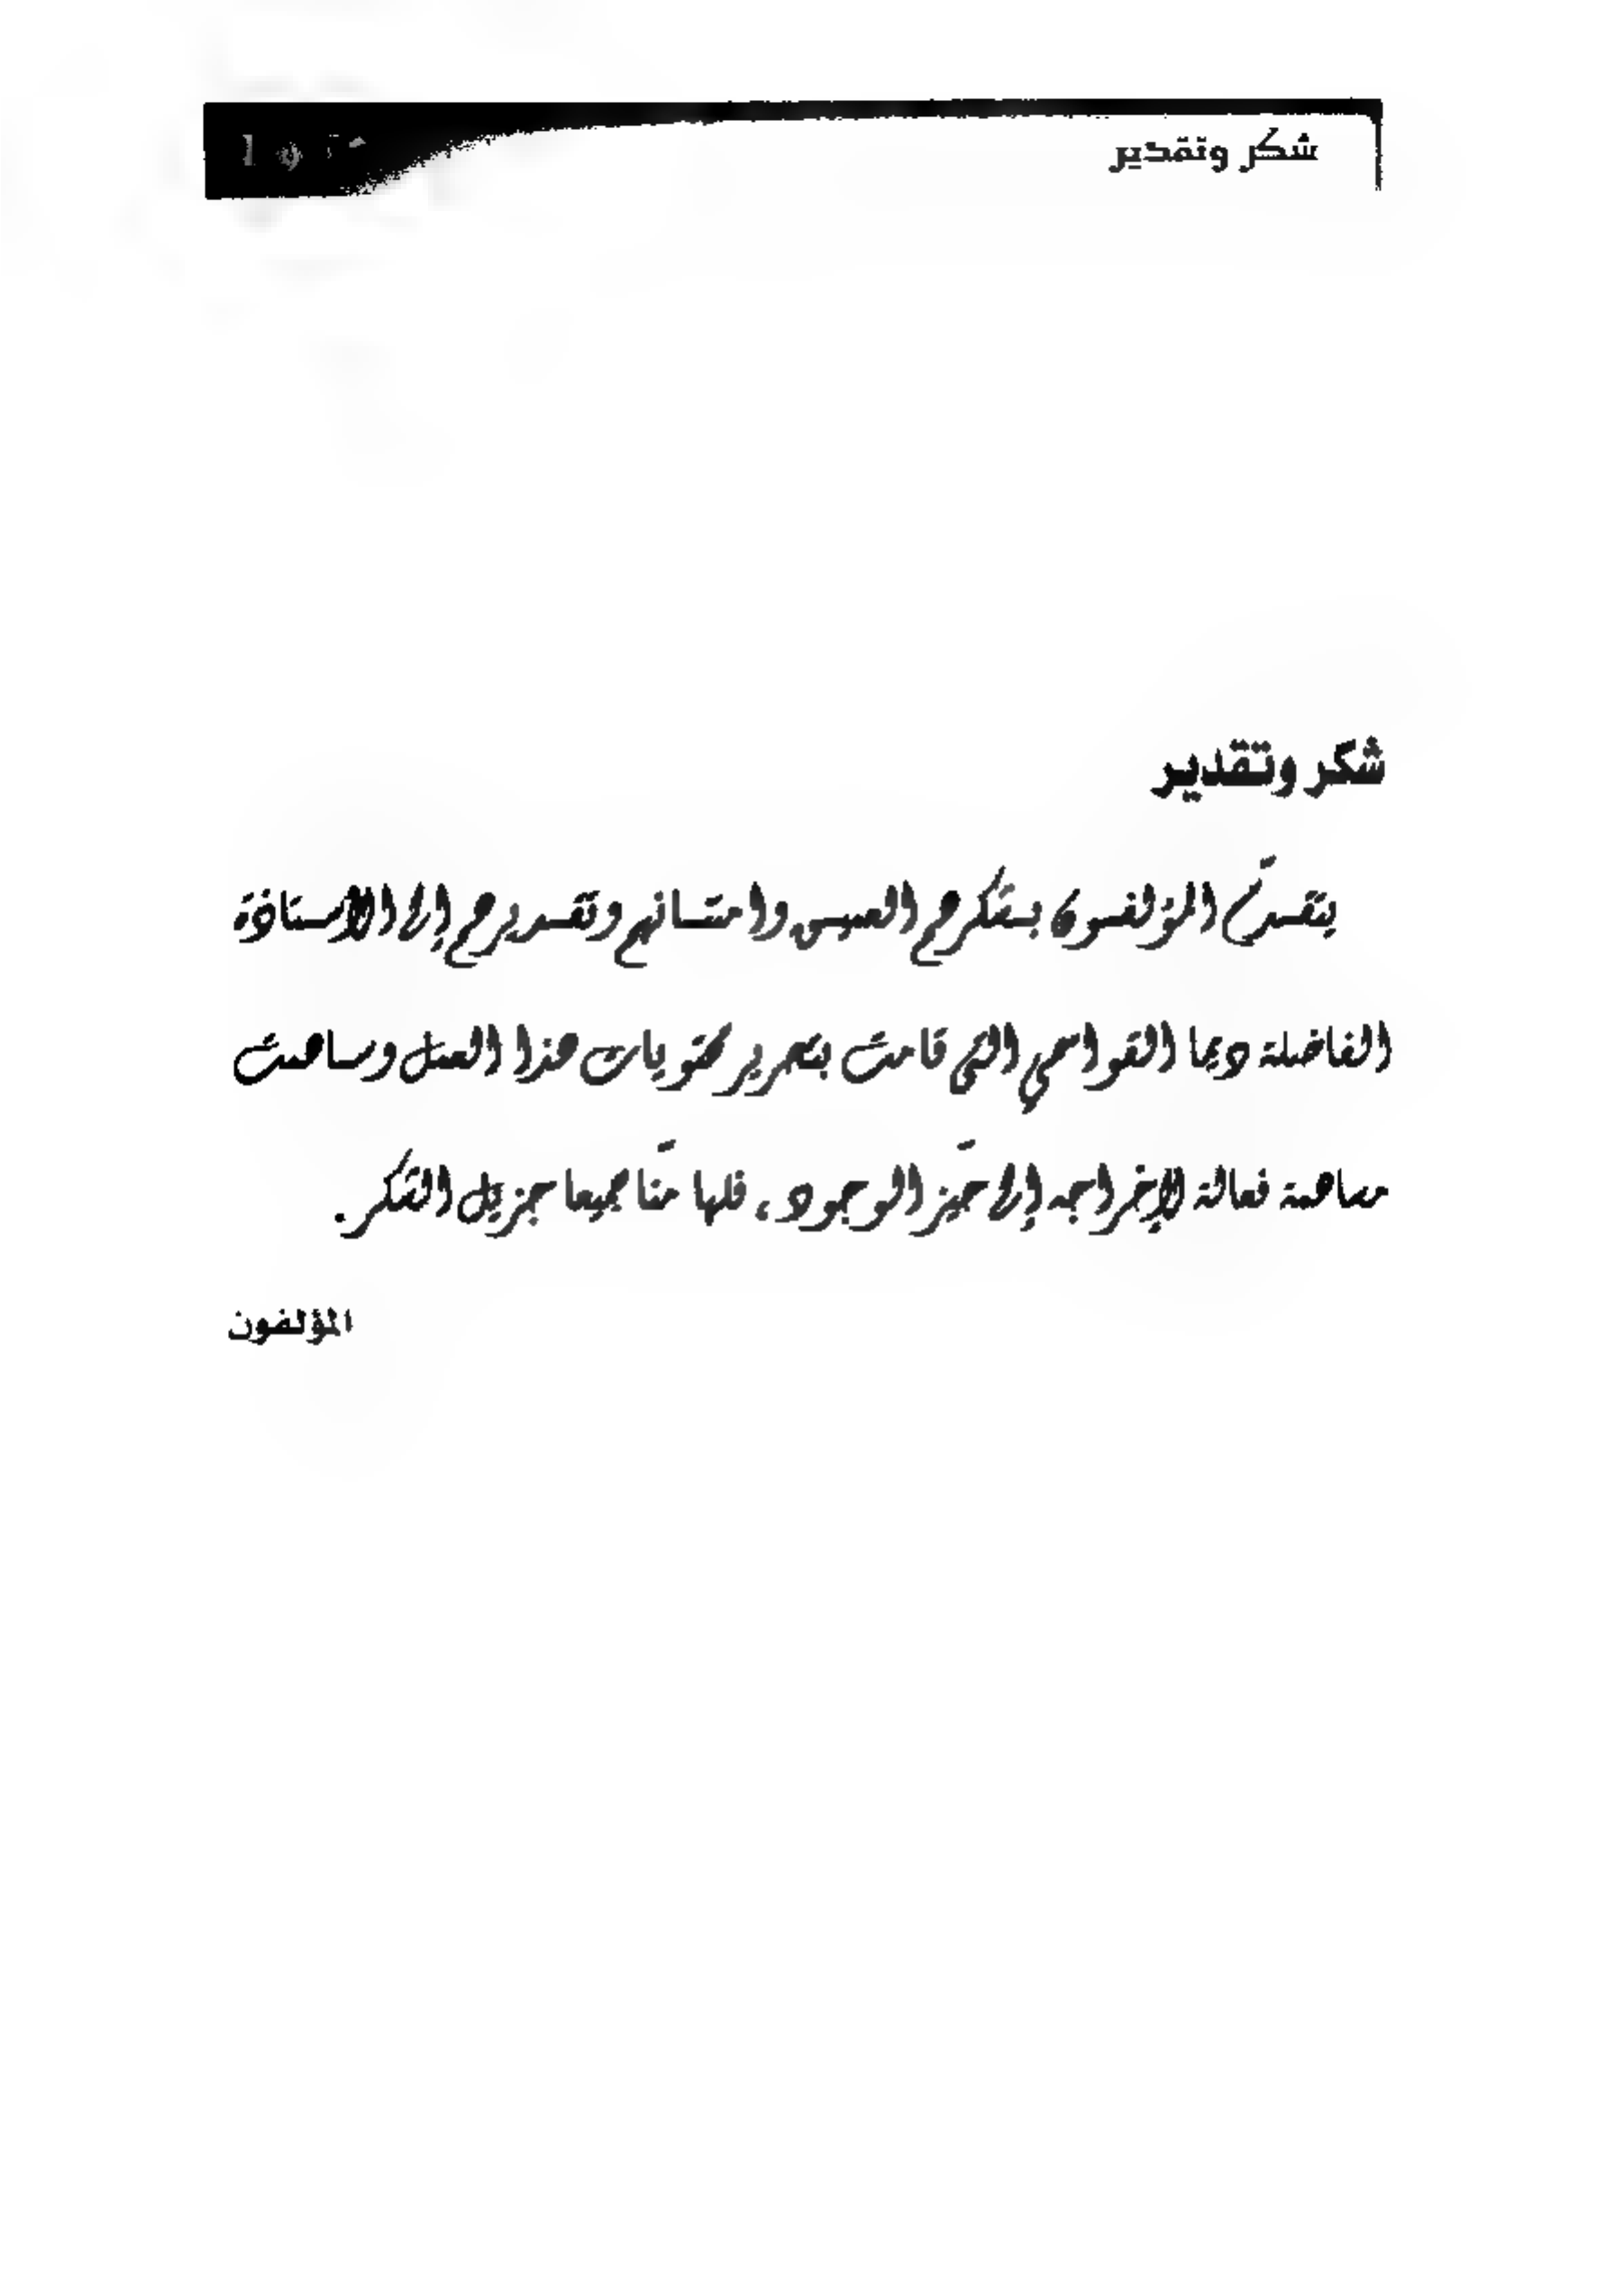 شكر وتقدير
شكر وتقدير
يتقدّم المؤلفون بشكرهم العميق وامتنانهم وتقديرهم إلى الأستاذة
الفاضلة ديما القواسمي التي قامت بتحرير محتويات هذا العمل وساهمت
مساهمة فعالة لإخراجه إلى حيّز الوجود، فلها منّا جميعا جزيل الشكر.
المؤلفون